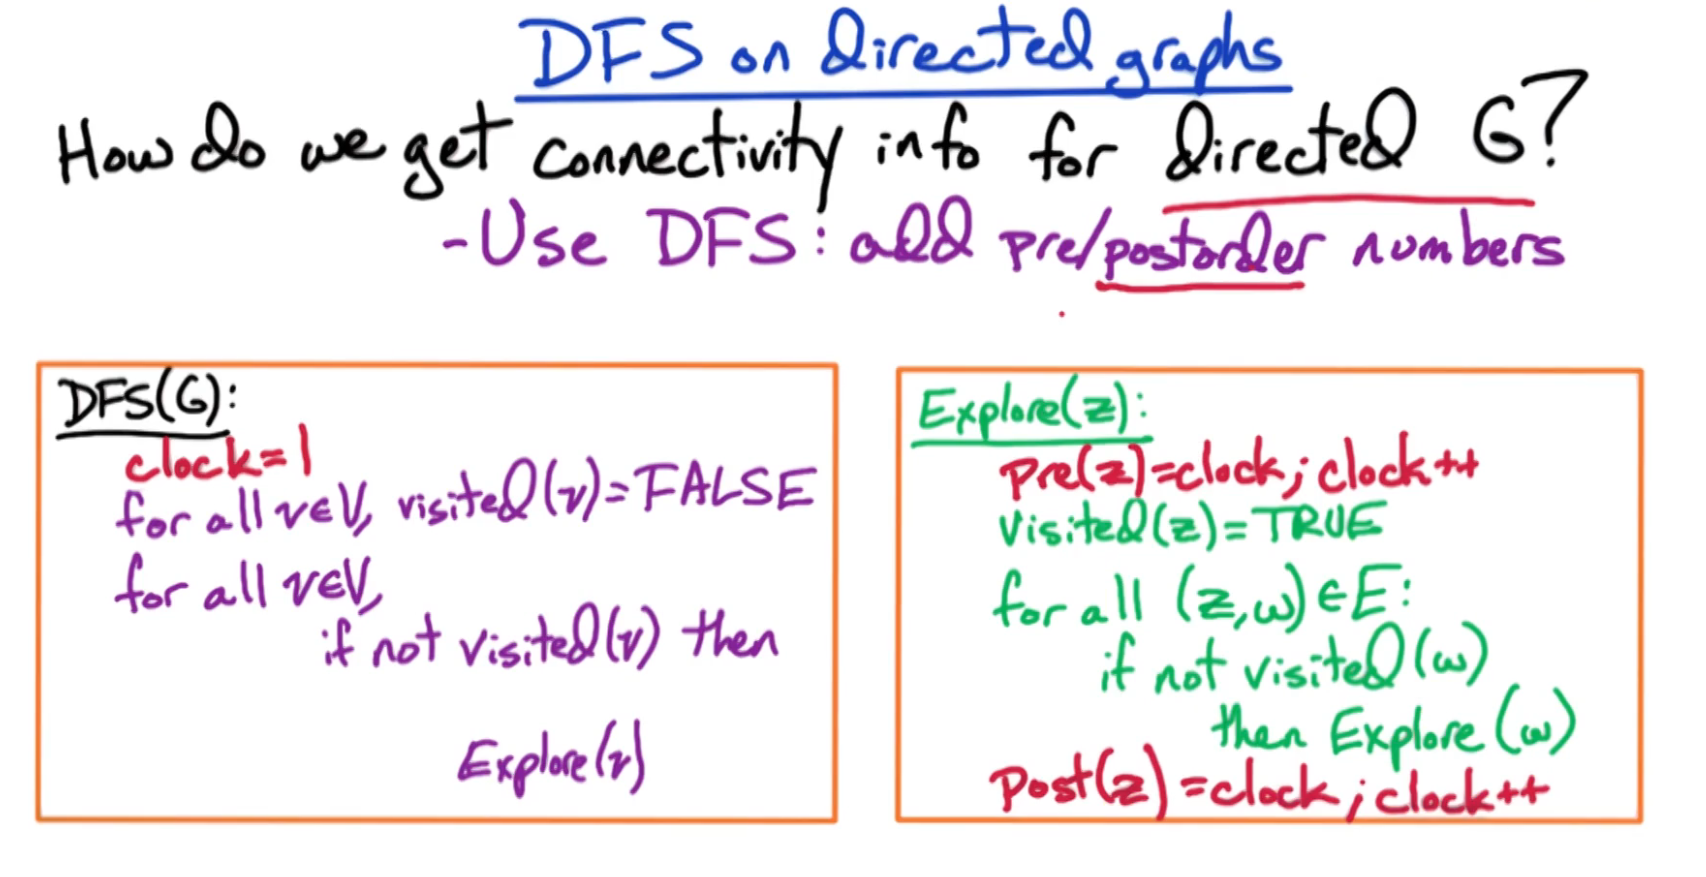 DFS on directed graphs
How do we get connectivity info for directed G?
-Use DFS: add pre/postorder numbers
DFS(G):
clock=1
for all v∈V, visited(v)=FALSE
for all v∈V,
if not visited(v) then
Explore(v)
Explore(z):
pre(z)=clock; clock++
visited(z)=TRUE
for all (z,w)∈E:
if not visited(w)
then Explore(w)
Post(z)=clock; clock++